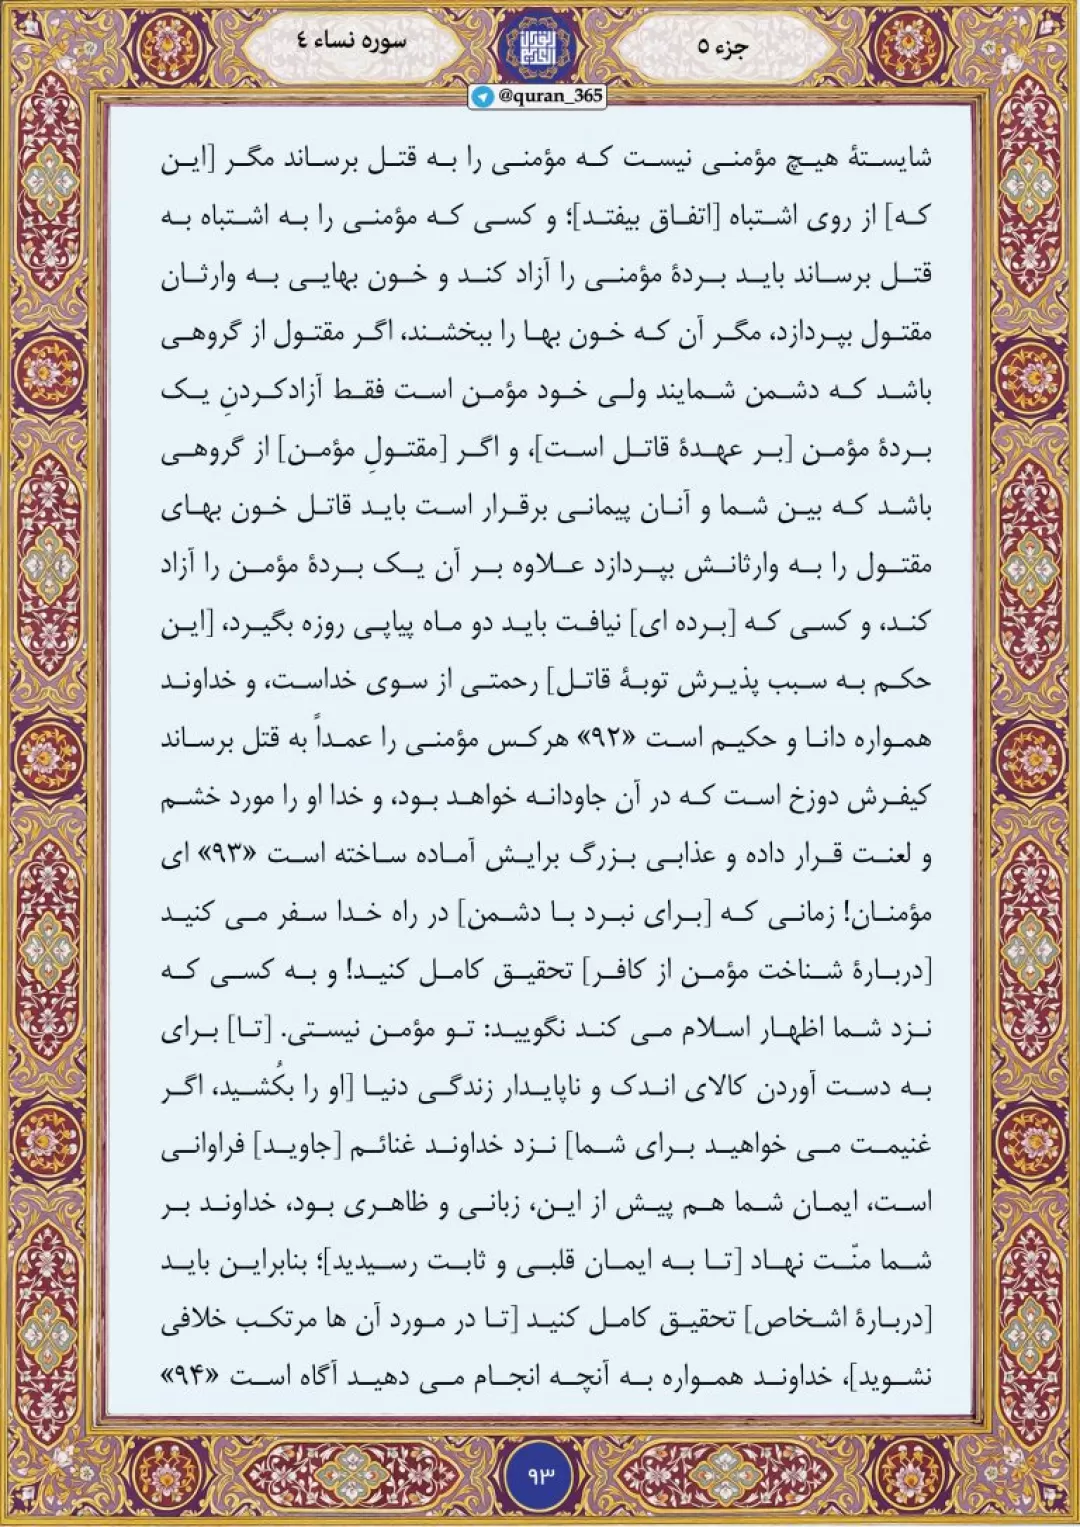 جزء ٥
سوره نساء ٤
@quran_365
شایستهٔ هیچ مؤمنی نیست که مؤمنی را به قتل برساند مگر [این
که] از روی اشتباه [اتفاق بیفتد]؛ و کسی که مؤمنی را به اشتباه به
قتل برساند باید بردهٔ مؤمنی را آزاد کند و خون بهایی به وارثان
مقتول بپردازد، مگر آن که خون بها را ببخشند، اگر مقتول از گروهی
باشد که دشمن شمایند ولی خود مؤمن است فقط آزادکردنِ یک
بردهٔ مؤمن [بر عهدهٔ قاتل است]، و اگر [مقتولِ مؤمن] از گروهی
باشد که بین شما و آنان پیمانی برقرار است باید قاتل خون بهای
مقتول را به وارثانش بپردازد علاوه بر آن یک بردهٔ مؤمن را آزاد
کند، و کسی که [برده ای] نیافت باید دو ماه پیاپی روزه بگیرد، [این
حکم به سبب پذیرش توبهٔ قاتل] رحمتی از سوی خداست، و خداوند
همواره دانا و حکیم است «۹۲» هرکس مؤمنی را عمداً به قتل برساند
کیفرش دوزخ است که در آن جاودانه خواهد بود، و خدا او را مورد خشم
و لعنت قرار داده و عذابی بزرگ برایش آماده ساخته است «۹۳» ای
مؤمنان! زمانی که [برای نبرد با دشمن] در راه خدا سفر می کنید
[دربارهٔ شناخت مؤمن از کافر] تحقیق کامل کنید! و به کسی که
نزد شما اظهار اسلام می کند نگویید: تو مؤمن نیستی. [تا] برای
به دست آوردن کالای اندک و ناپایدار زندگی دنیا [او را بکُشید، اگر
غنیمت می خواهید برای شما] نزد خداوند غنائم [جاوید] فراوانی
است، ایمان شما هم پیش از این، زبانی و ظاهری بود، خداوند بر
شما منّت نهاد [تا به ایمان قلبی و ثابت رسیدید]؛ بنابراین باید
[دربارهٔ اشخاص] تحقیق کامل کنید [تا در مورد آن ها مرتکب خلافی
نشوید]، خداوند همواره به آنچه انجام می دهید آگاه است «۹۴»
۹۳